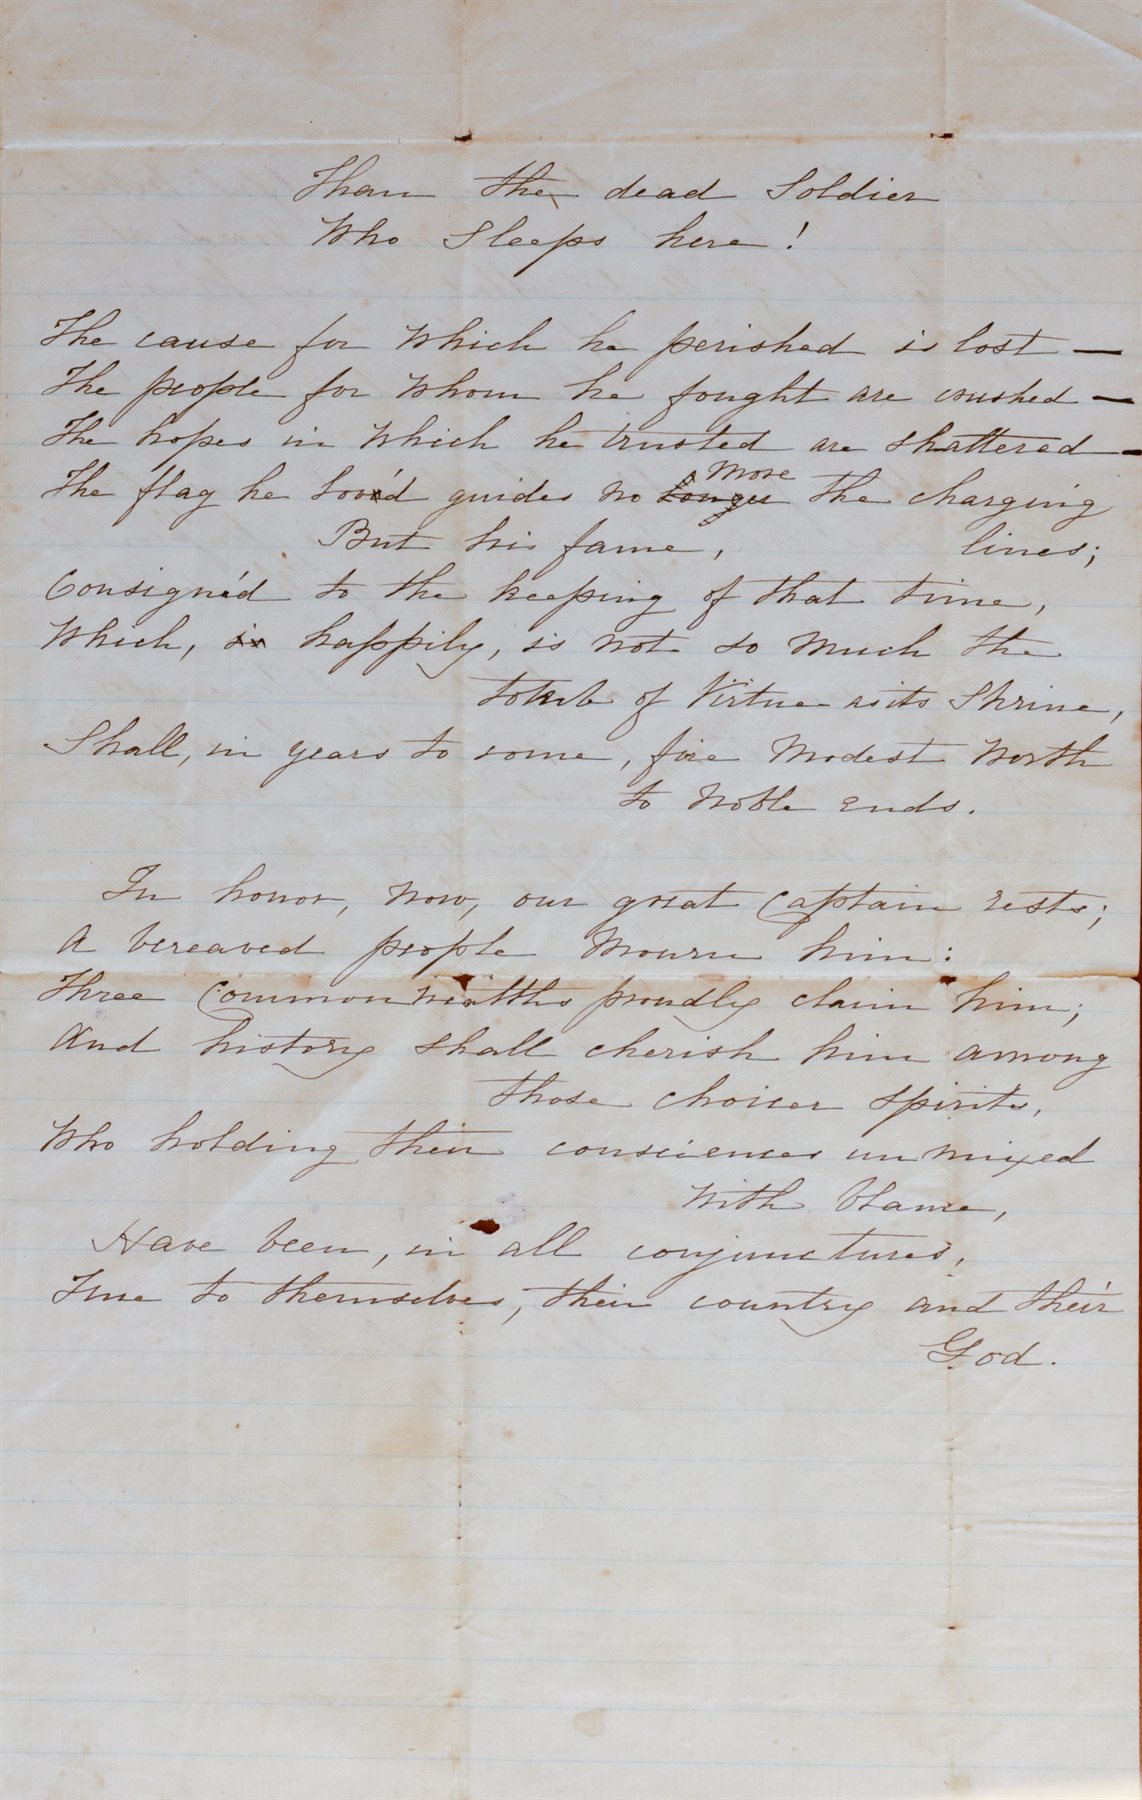 Than the dead Soldier
Who Sleeps here!
The cause for which he perished is lost —
The people for whom he fought are crushed —
The hopes in which he trusted are shattered —
The flag he lov'd guides no longer more the charging
lines;
But his fame,
Consign'd to the keeping of that time,
Which, is happily, is not so much the
tomb of Virtue as its Shrine,
Shall, in years to come, fire Modest Worth
to Noble Ends.
In honor, now, our great Captain rests;
A bereaved people Mourn him:
Three Commonwealths proudly claim him;
And history shall cherish him among
those choicer spirits,
Who holding their consciences unmixed
with blame,
Have been, in all conjunctures,
True to themselves, their country and their
God.